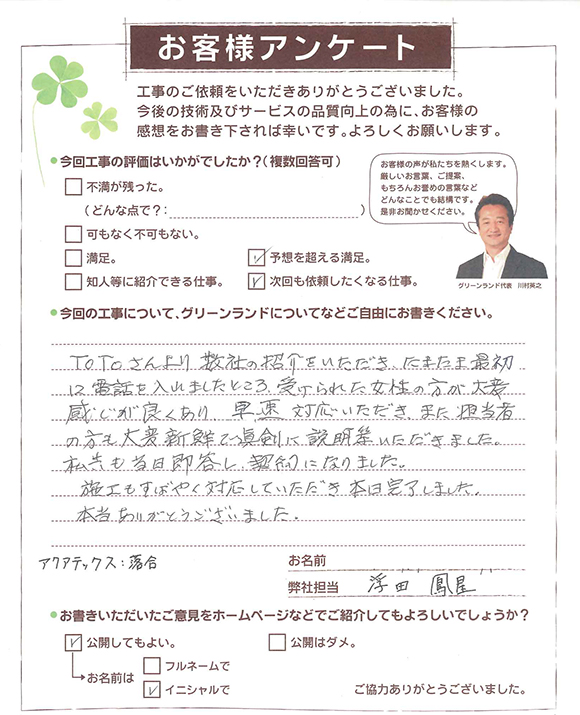 お客様アンケート
工事のご依頼をいただきありがとうございました。
今後の技術及びサービスの品質向上の為に、お客様の
感想をお書き下されば幸いです。よろしくお願いします。
今回工事の評価はいかがでしたか？（複数回答可）
不満が残った。
（どんな点で？：　）
可もなく不可もない。
満足。
予想を超える満足。
知人等に紹介できる仕事。
次回も依頼したくなる仕事。
お客様の声が私たちを熱くします。
厳しいお言葉、ご提案、
もちろんお誉めの言葉など
どんなことでも結構です。
是非お聞かせください。
グリーンランド代表　川村英之
今回の工事について、グリーンランドについてなどご自由にお書きください。
TOTOさんより 数社の紹介をいただき、たまたま最初
に電話を入れましたところ、受けられた女性の方が大変
感じが良くあり 早速 対応いただき、また担当者
の方も大変新鮮で真剣に説明等いただきました。
私共も当日即答し、契約になりました。
施工もすばやく対応していただき 本日完了しました。
本当ありがとうございました。
アクアテックス：落合
お名前
弊社担当　浮田　鳳星
お書きいただいたご意見をホームページなどでご紹介してもよろしいでしょうか？
公開してもよい。
公開はダメ。
お名前は
フルネームで
イニシャルで
ご協力ありがとうございました。